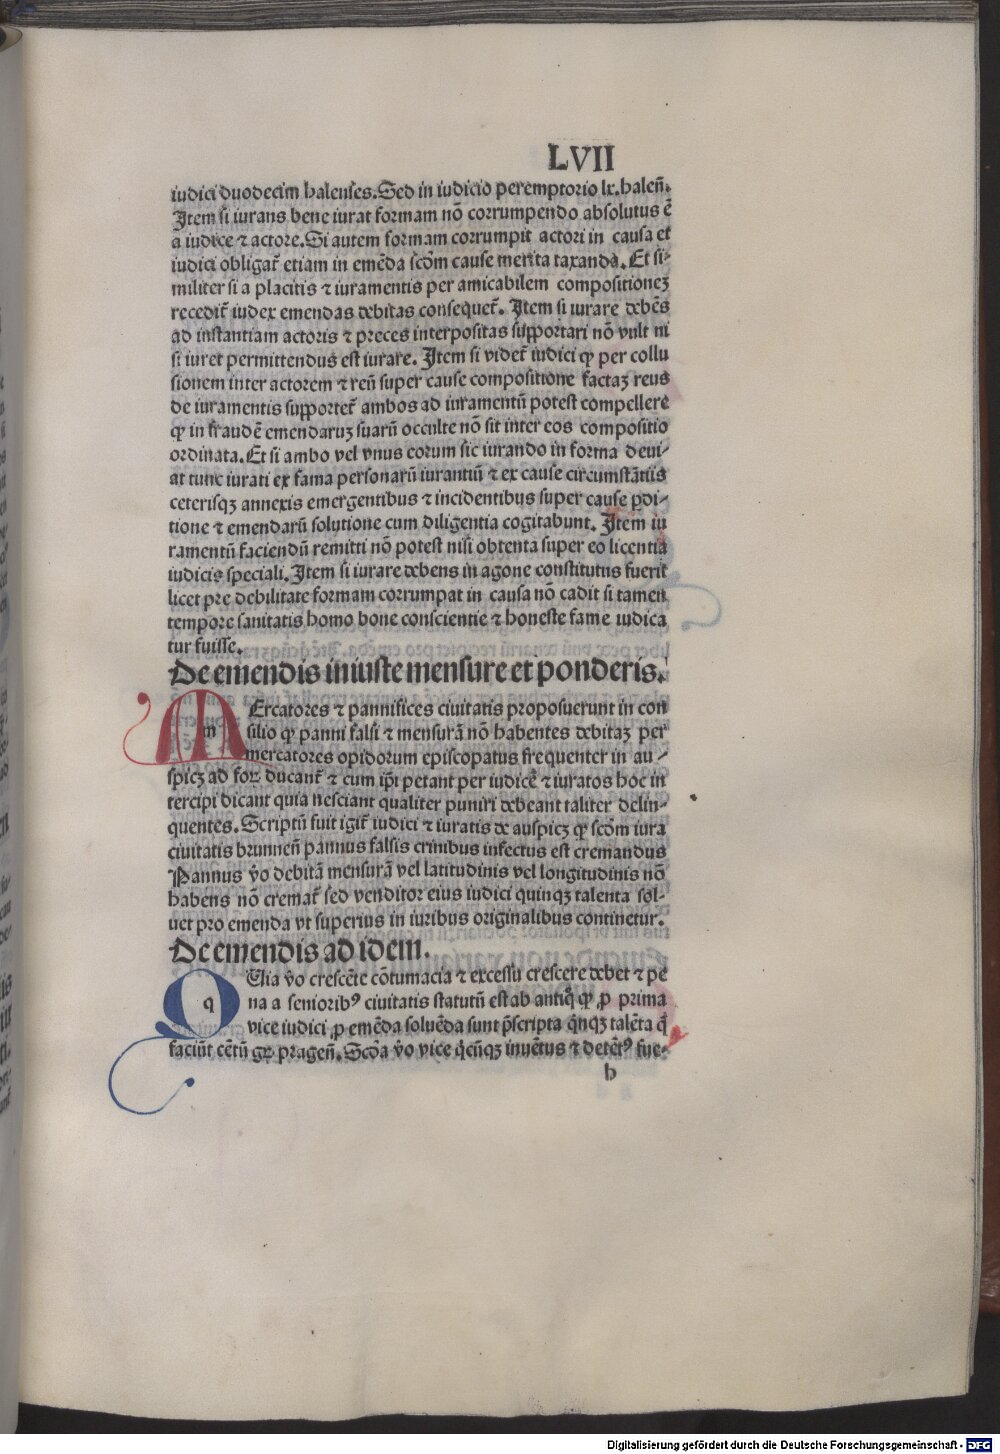 LVII
iudici duodecim halenses. Sed in iudicio peremptorio lx. haleñ.
Item si iurans bene iurat formam nō corrumpendo absolutus ē
a iudice ⁊ actore. Si autem formam corrumpit actori in causa et
iudici obligat̄ etiam in emēda scōm cause merita taxanda. Et si⸗
militer si a placitis ⁊ iuramentis per amicabilem compositioneȝ
recedit̄ iudex emendas debitas consequet̄. Item si iurare debēs
ad instantiam actoris ⁊ preces interpositas supportari nō vult ni
si iuret permittendus est iurare. Item si videt̄ iudici ꝙ per collu
sionem inter actorem ⁊ reū super cause compositione factaȝ reus
de iuramentis supportet̄ ambos ad iuramentū potest compellere
ꝙ in fraudē emendaruȝ suarū occulte nō sit inter eos compositio
ordinata. Et si ambo vel vnus eorum sic iurando in forma deui⸗
at tunc iurati ex fama personarū iurantiū ⁊ ex cause circumstātiis
ceterisqȝ annexis emergentibus ⁊ incidentibus super cause ꝑdi⸗
tione ⁊ emendarū solutione cum diligentia cogitabunt. Item iu
ramentū faciendū remitti nō potest nisi obtenta super eo licentia
iudicis speciali. Item si iurare debens in agone constitutus fuerit
licet pre debilitate formam corrumpat in causa nō cadit si tamen
tempore sanitatis homo bone conscientie ⁊ honeste fame iudica
tur fuisse.
De emendis iniuste mensure et ponderis.
MErcatores ⁊ pannifices ciuitatis proposuerunt in con
m silio ꝙ panni falsi ⁊ mensurā nō habentes debitaȝ per
mercatores opidorum episcopatus frequenter in au⸗
spicȝ ad foꝝ ducant̄ ⁊ cum ip̄i petant per iudicē ⁊ iuratos hoc in
tercipi dicant quia nesciant qualiter puniri debeant taliter delin⸗
quentes. Scriptū fuit igit̄ iudici ⁊ iuratis de auspicȝ ꝙ scōm iura
ciuitatis brunneñ pannus falsis crinibus infectus est cremandus
Pannus v̄o debitā mensurā vel latitudinis vel longitudinis nō
habens nō cremat̄ sed venditor eius iudici quinqȝ talenta sol⸗
uet pro emenda vt superius in iuribus originalibus continetur.
De emendis ad idem.
QUia v̄o crescēte cōtumacia ⁊ excessu crescere debet ⁊ pe
q na a senioribꝰ ciuitatis statutū est ab antiq̄ ꝙ ꝓ prima
vice iudici ꝓ emēda soluēda sunt p̄scripta q̄nqȝ talēta q̄
faciūt cētū gꝝ prageñ. Scd̄a v̄o vice q̄cūqȝ inuētus ⁊ detētꝰ fue⸗
h
Digitalisierung gefördert durch die Deutsche Forschungsgemeinschaft - DFG